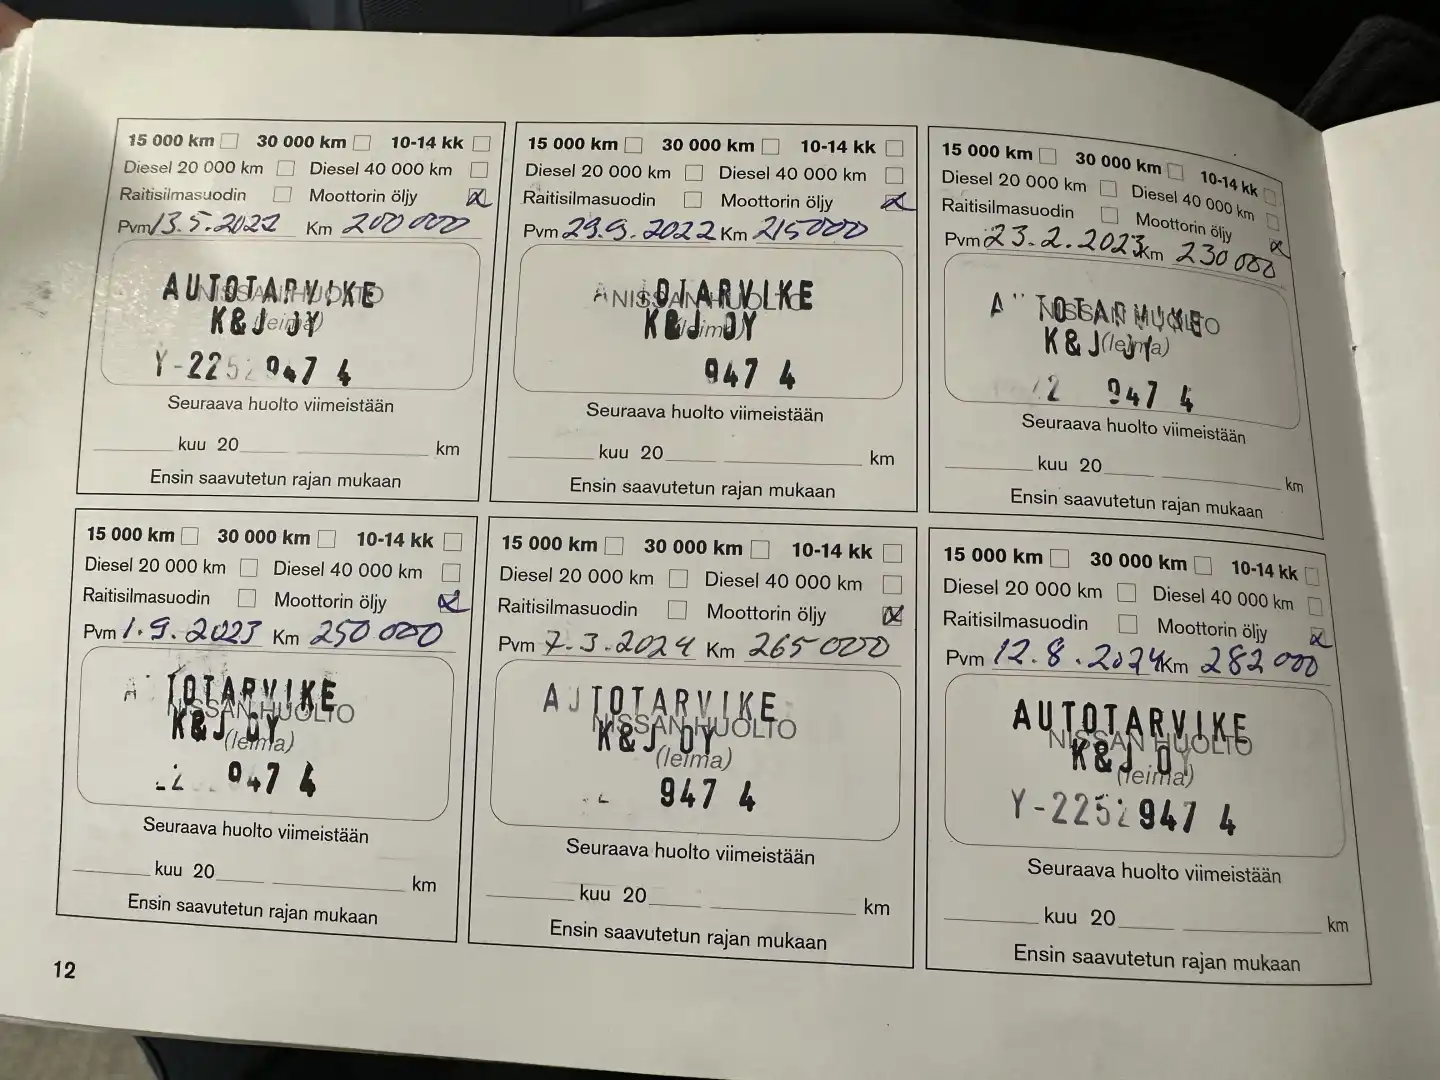 15 000 km 30 000 km 10-14 kk
Diesel 20 000 km Diesel 40 000 km
Raitisilmasuodin Moottorin öljy
Pvm 13.5.2022 Km 200 000
AUTOTARVIKE
NISSAN HUOLTO
K&J OY
(leima)
Y-2252947 4
Seuraava huolto viimeistään
kuu 20 km
Ensin saavutetun rajan mukaan
15 000 km 30 000 km 10-14 kk
Diesel 20 000 km Diesel 40 000 km
Raitisilmasuodin Moottorin öljy
Pvm 29.9.2022 Km 215000
A OTARVIKE
NISSAN HUOLTO
K&J OY
(leima)
947 4
Seuraava huolto viimeistään
kuu 20 km
Ensin saavutetun rajan mukaan
15 000 km 30 000 km 10-14 kk
Diesel 20 000 km Diesel 40 000 km
Raitisilmasuodin Moottorin öljy
Pvm 23.2.2023 Km 230 000
A TOTARVIKE
NISSAN HUOLTO
K&J OY
(leima)
2 947 4
Seuraava huolto viimeistään
kuu 20 km
Ensin saavutetun rajan mukaan
15 000 km 30 000 km 10-14 kk
Diesel 20 000 km Diesel 40 000 km
Raitisilmasuodin Moottorin öljy
Pvm 1.9.2023 Km 250 000
A TOTARVIKE
NISSAN HUOLTO
K&J OY
(leima)
2 947 4
Seuraava huolto viimeistään
kuu 20 km
Ensin saavutetun rajan mukaan
15 000 km 30 000 km 10-14 kk
Diesel 20 000 km Diesel 40 000 km
Raitisilmasuodin Moottorin öljy
Pvm 7.3.2024 Km 265 000
AUTOTARVIKE
NISSAN HUOLTO
K&J OY
(leima)
947 4
Seuraava huolto viimeistään
kuu 20 km
Ensin saavutetun rajan mukaan
15 000 km 30 000 km 10-14 kk
Diesel 20 000 km Diesel 40 000 km
Raitisilmasuodin Moottorin öljy
Pvm 12.8.2024 Km 282 000
AUTOTARVIKE
NISSAN HUOLTO
K&J OY
(leima)
Y-2252947 4
Seuraava huolto viimeistään
kuu 20 km
Ensin saavutetun rajan mukaan
12